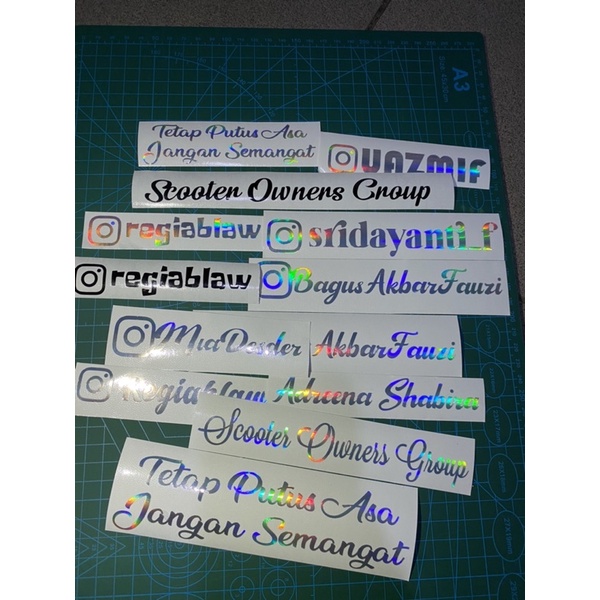 A3
Tetap Putus Asa
Jangan Semangat
UAZMIF
Scooter Owners Group
regiablaw
sridayanti_f
regiablaw
BagusAkbarFauzi
MiaDesder
AkbarFauzi
Regiablaw
Adreena Shabira
Scooter Owners Group
Tetap Putus Asa
Jangan Semangat